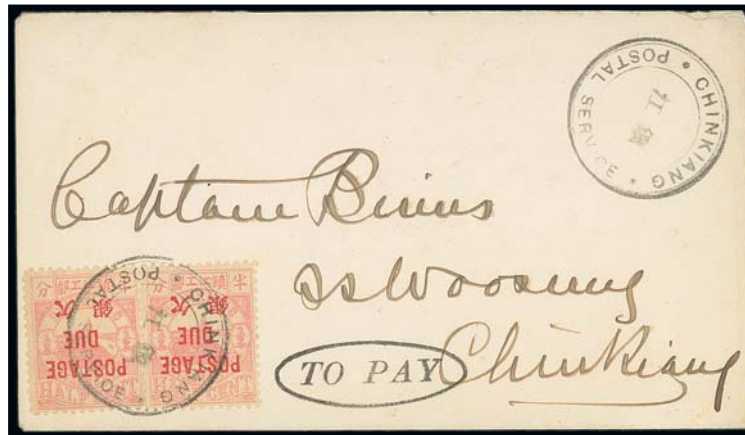 CHINKIANG
POSTAL SERVICE
11
Captain Binns
SS Woosung
Chinkiang
TO PAY
分 部工 分 部工 半
欠 銀 欠 銀
POSTAGE DUE POSTAGE DUE
HALF CENT
CHINKIANG
POSTAL SERVICE
11